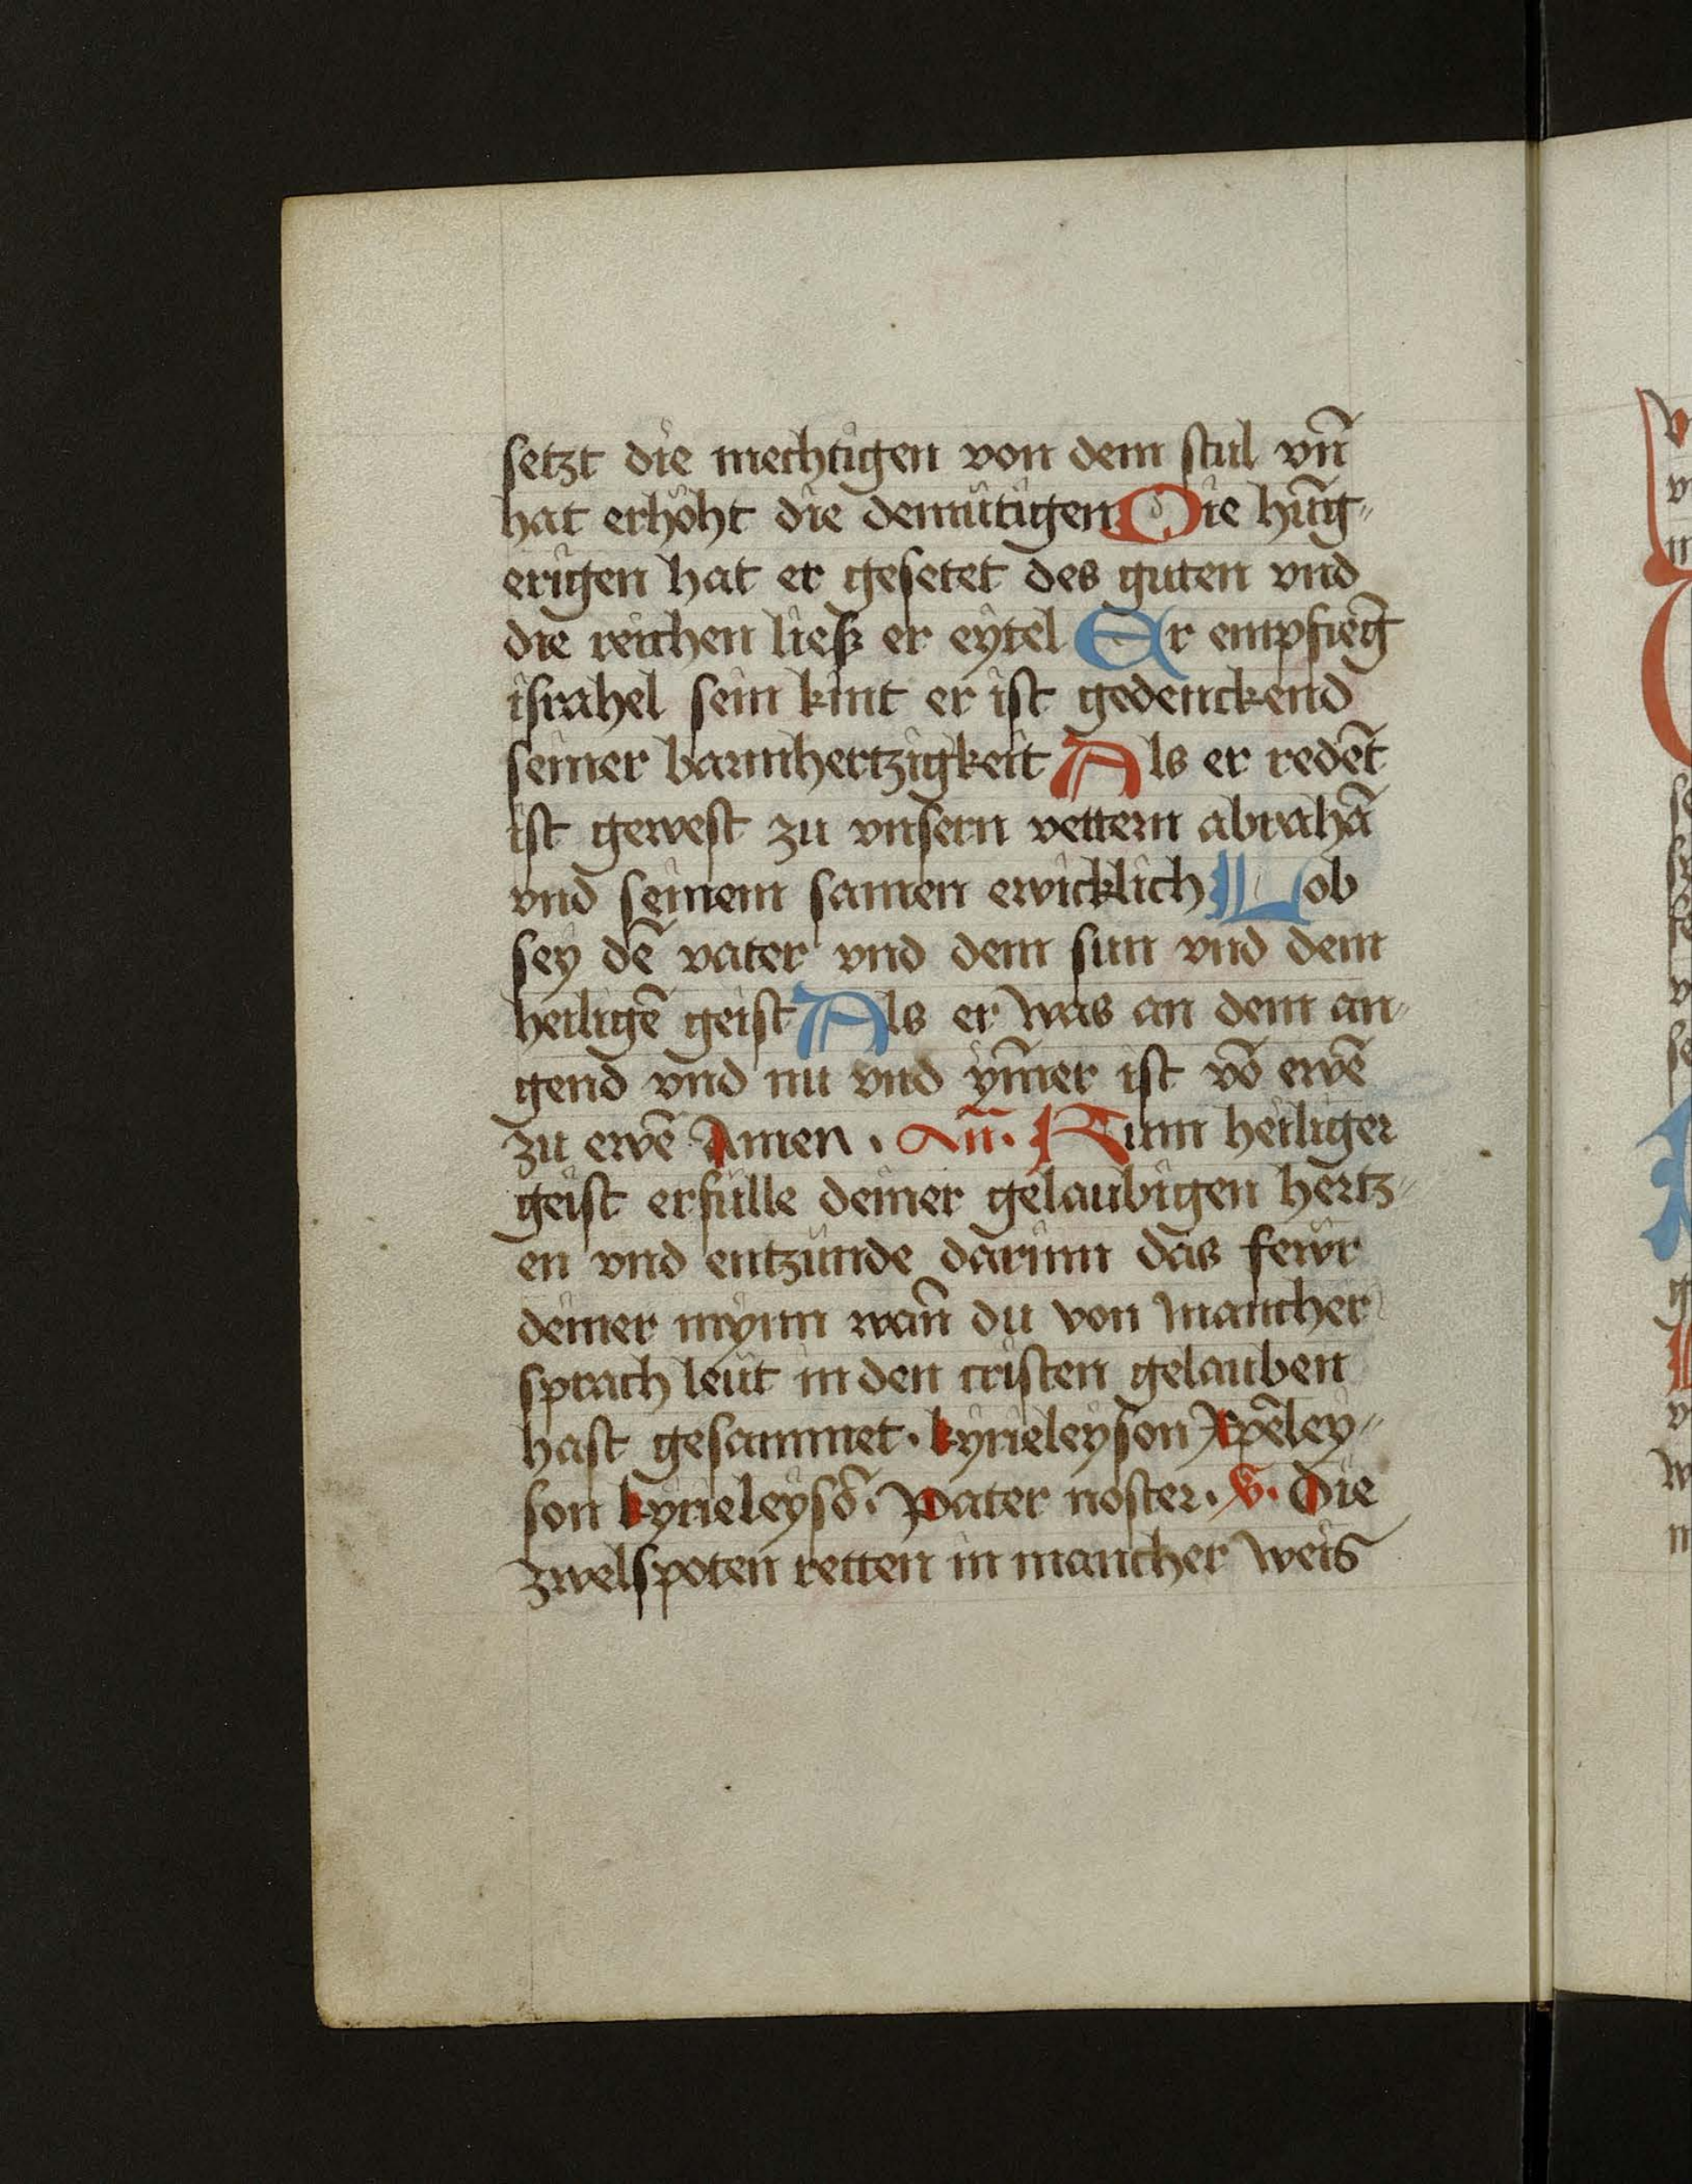 setzt die mechtigen von dem stul vn̄
hat erhöht die demütigen Die hūg⸗
erigen hat er gesetet des guten vnd
die reichen ließ er eytel Er empfieḡ
israhel sein kint er ist gedenckend
seiner barmhertzigkeit Als er redēt
ist gewest zu vnsern vettern abrahā
vnd seinem samen ewicklich Lob
sey dē vater vnd dem sun vnd dem
heiligē geist Als er was an dem an⸗
gend vnd nu vnd ym̄er ist vō ewē
zu ewē Amen . An̄. Kumm heiliger
geist erfülle deiner gelaubigen hertz⸗
en vnd entzünde darinn das fewr
deiner mynn wan̄ du von mancher
sprach leüt in den cristen gelauben
hast gesammet . kyrieleyson Xpēley⸗
son kyrieleysō . Pater noster . v. Die
zwelspoten retten in mancher weis